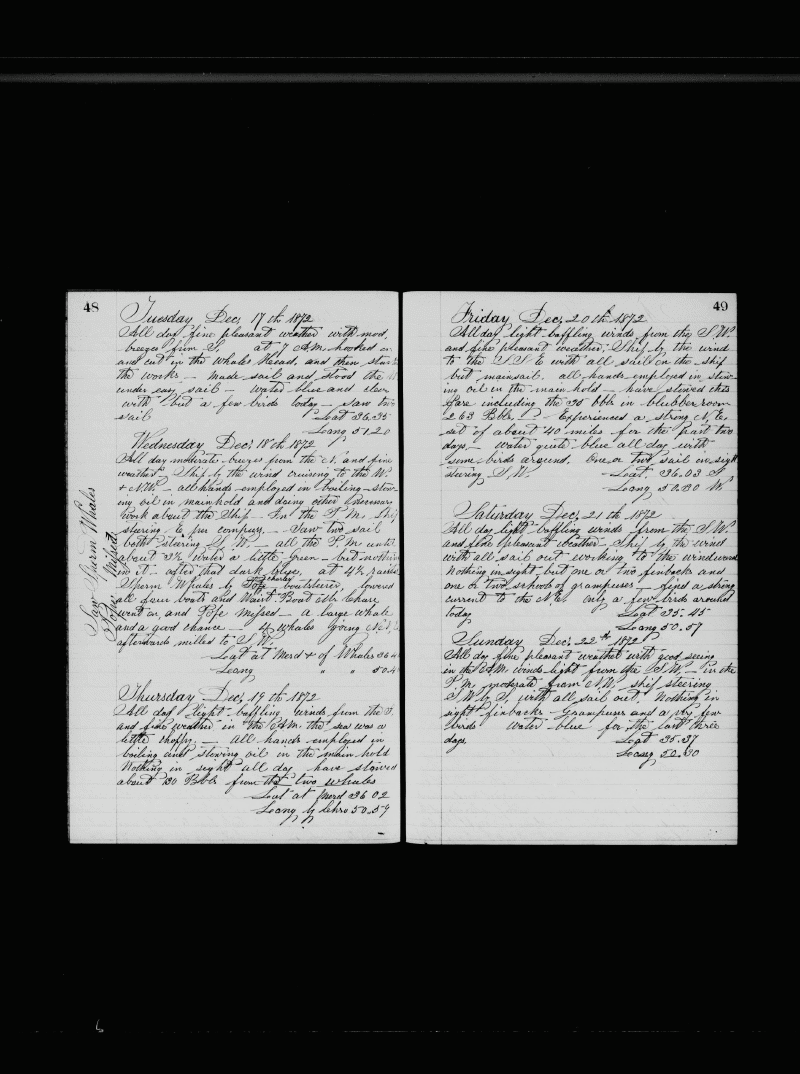 48
Tuesday Dec, 17th 1872
All day fine pleasant weather with mod,
breezes from S, at 7 A.M. hooked on
and cut in the Whales Head, and then started
the works - Made sail and stood the
under easy sail - water blue and clear
with but a few birds today - saw two
sail Lat 36.35
Long 51.20
Wednesday Dec, 18th 1872
All day moderate breezes from the and fine
weather Ship by the wind cruising to the W.
& N.W. - all hands employed in boiling - stow-
ing oil in mainhold and doing other necessary
work about the Ship - In the P.M. Ship
steering E per compass - Saw two sail
both steering S.W. - all the P.M. until
about 3½ water a little green - but nothing
in it - after that dark blue, at 4½ raised
Sperm Whales by boatsteerer, lowered
all four boats and Waist Boat chase
went on, and Pope Missed - a large whale
and a good chance - whales going
afterwards milled to S.W.
Lat at Merd & of Whales 36
Long " " 50.4
Saw Sperm Whales
Pope Missed
Thursday Dec, 19th 1872
All day light baffling winds from the
and fine weather in the A.M. the sea was a
little choppy - all hands employed in
boiling and stowing oil in the main hold
Nothing in sight all day have stowed
about 130 Bbls from the two whales
Lat at Merd 36 02
Long by Chro 50.59
49
Friday Dec, 20th 1872
All day light baffling winds from the S.W.
and fine pleasant weather, Ship by the wind
to the S S E with all sail on the ship
but mainsail. all hands employed in stow-
ing oil in the main hold - have stowed this
far including the 35 bbls in blubber room
263 Bbls Experiences a strong N.E.
set of about 40 miles for the past two
days - water quite blue all day with
some birds around. One or two sail in sight
steering S.W. - Lat. 36.03
Long 50.30 W
Saturday Dec, 21th 1872
All day light baffling winds from the S.W.
and fine pleasant weather - Ship by the wind
with all sail out working to the windward
Nothing in sight but one or two finback and
one or two schools of grampuses - find a strong
current to the N.E. only a few birds around
today Lat 35.45
Long 50.57
Sunday Dec, 22th 1872
All day fine pleasant weather with good seeing
in the A.M. winds light from the S.W. - in the
P.M. moderate from N.W. ship steering
S.W. by S, with all sail out, Nothing in
sight finbacks Grampuses and a very few
birds water blue for the last three
days, Lat 35.37
Long 52.30